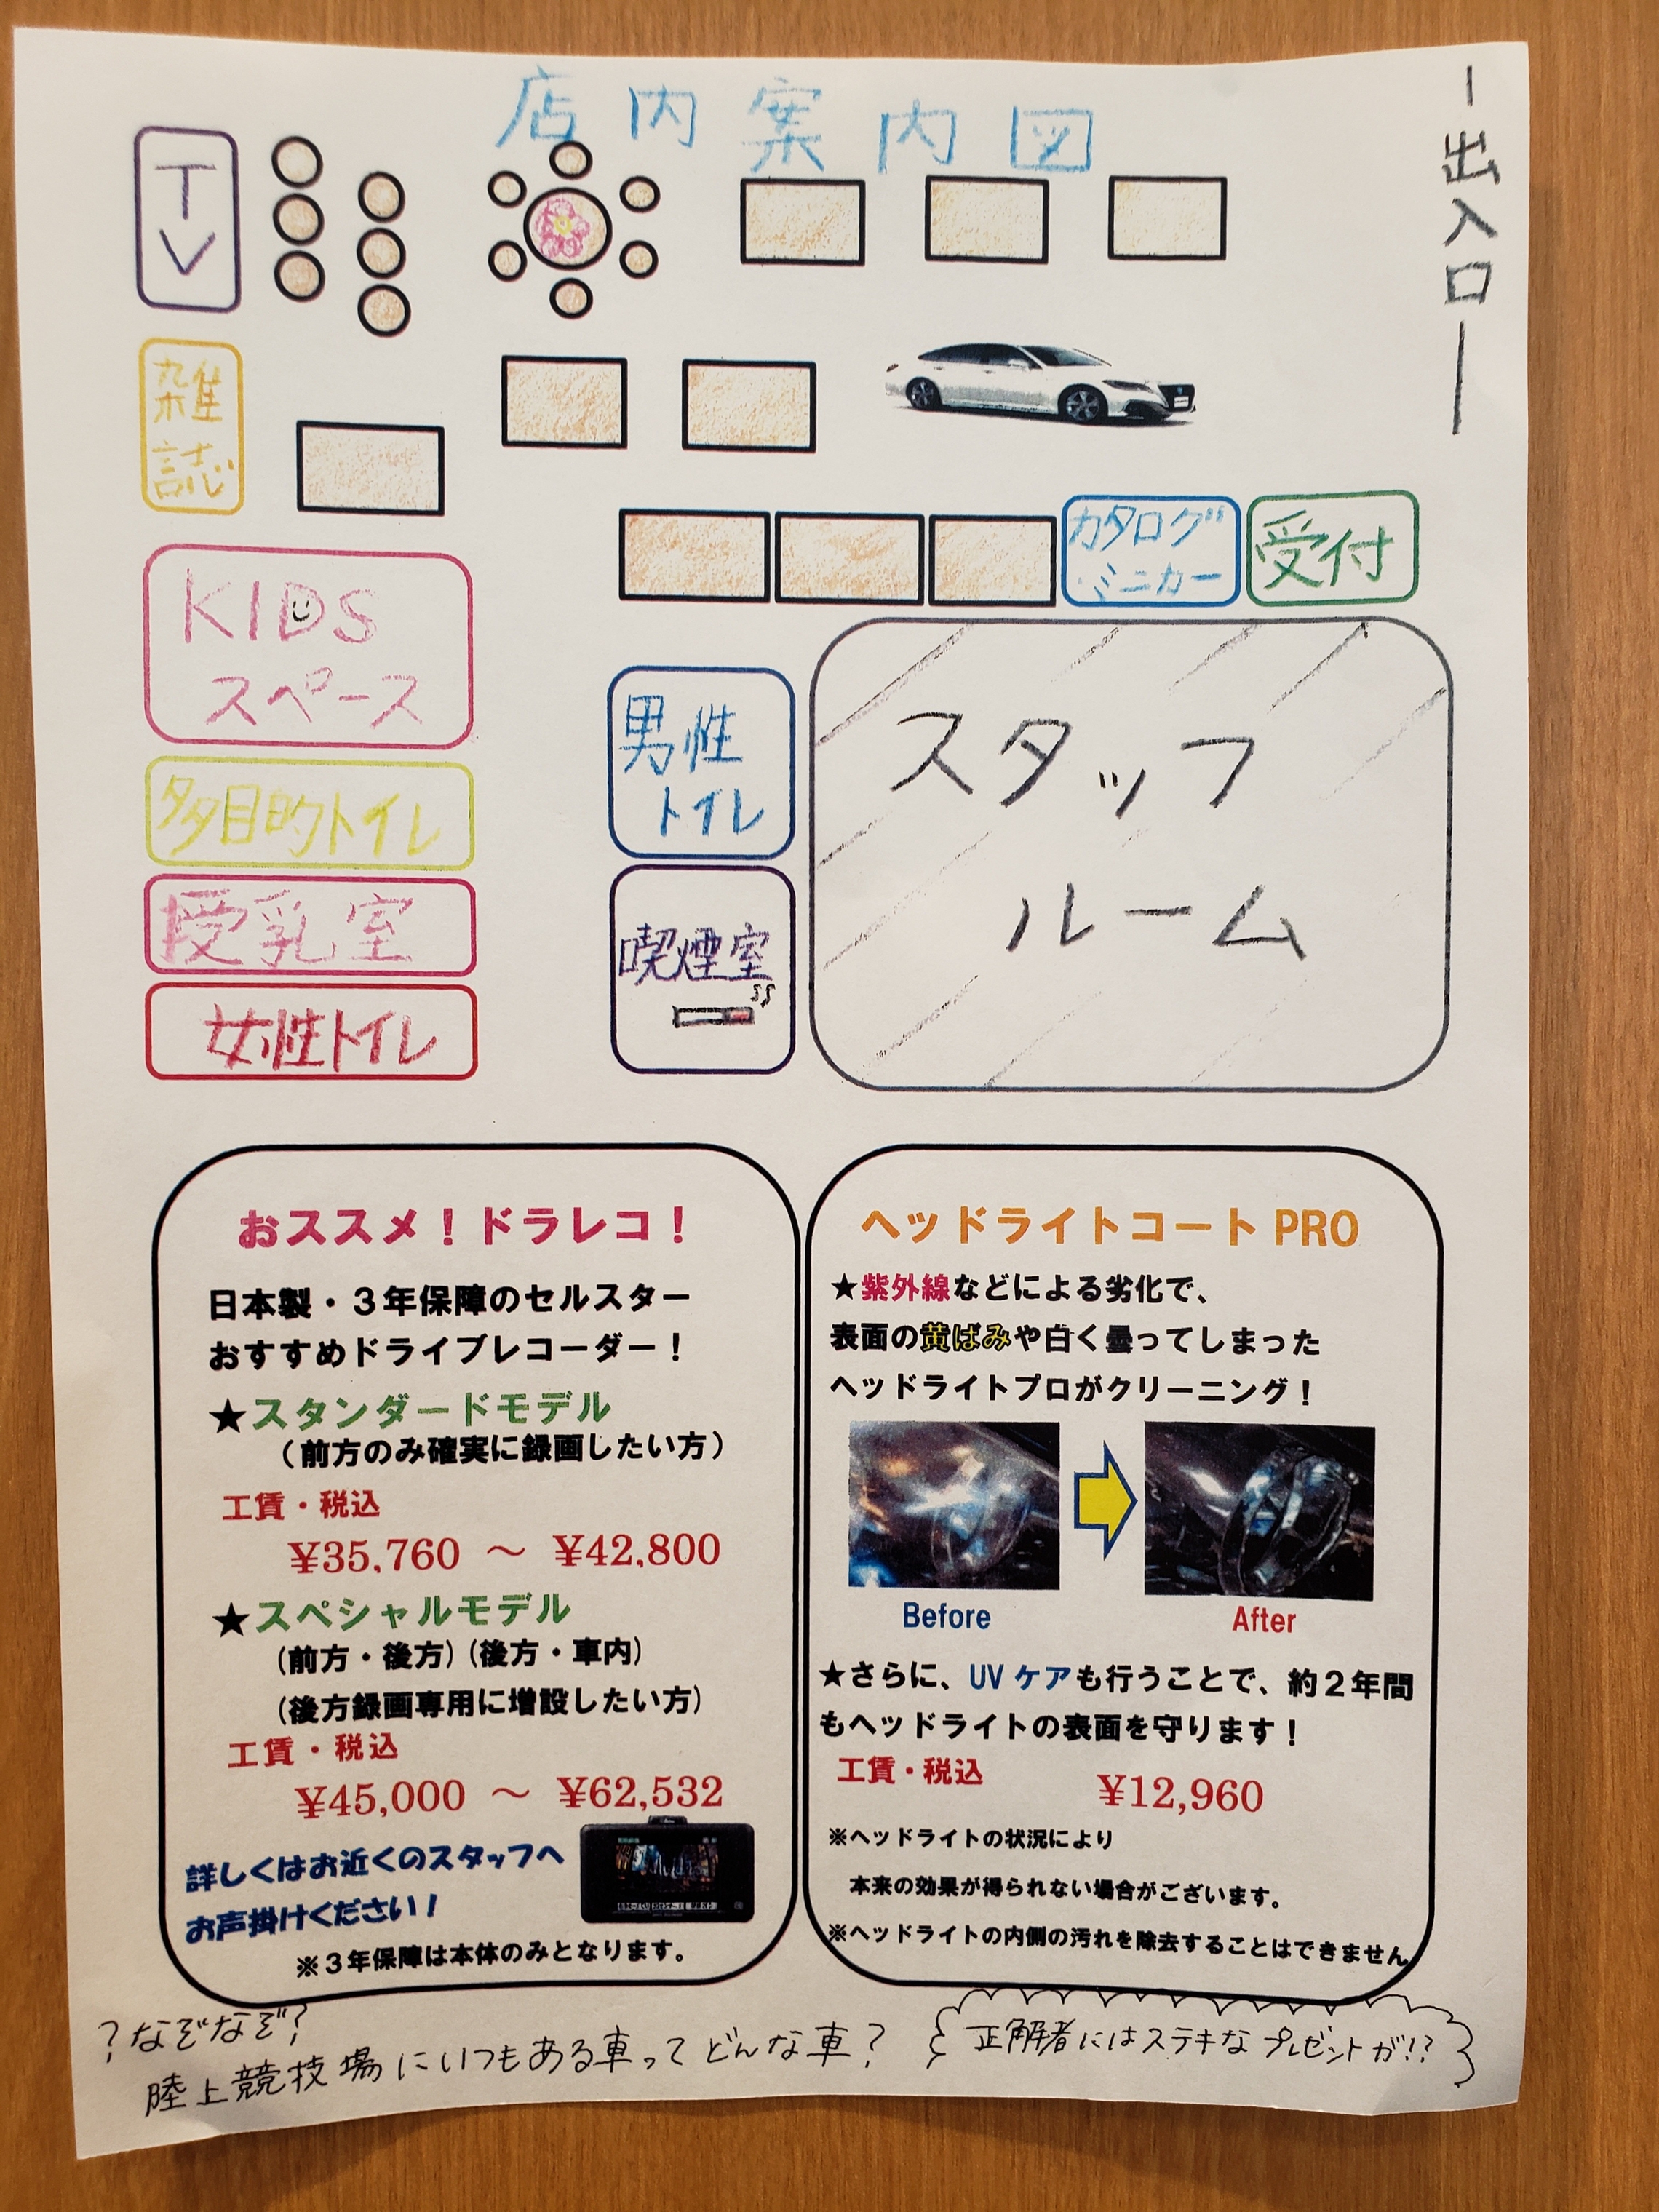 店内案内図
出入口
TV
雑
誌
カタログ
・ミニカー
受付
KIDS
スペース
男性
トイレ
スタッフ
ルーム
多目的トイレ
授乳室
喫煙室
女性トイレ
おススメ！ドラレコ！
日本製・３年保障のセルスター
おすすめドライブレコーダー！
★スタンダードモデル
（前方のみ確実に録画したい方）
工賃・税込
¥35,760 ～ ¥42,800
★スペシャルモデル
(前方・後方)(後方・車内)
(後方録画専用に増設したい方)
工賃・税込
¥45,000 ～ ¥62,532
詳しくはお近くのスタッフへ
お声掛けください！
※３年保障は本体のみとなります。
ヘッドライトコート PRO
★紫外線などによる劣化で、
表面の黄ばみや白く曇ってしまった
ヘッドライトプロがクリーニング！
Before
After
★さらに、UV ケアも行うことで、約２年間
もヘッドライトの表面を守ります！
工賃・税込 ¥12,960
※ヘッドライトの状況により
本来の効果が得られない場合がございます。
※ヘッドライトの内側の汚れを除去することはできません
？なぞなぞ？
陸上競技場にいつもある車ってどんな車？
正解者にはステキなプレゼントが!?